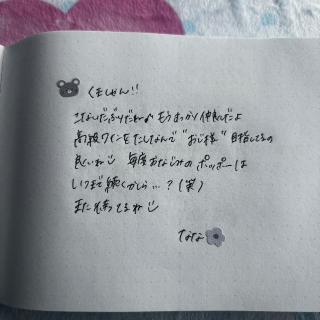 くましゃん!!
こないだぶりだねฅ もうすっかり仲良しだよ
高級ワインをたしなんで "おじ様" 目指してるの
良いね 毎度おなじみの ポッポーは
いつまで続くかしら…？（笑）
また来てるね
なな